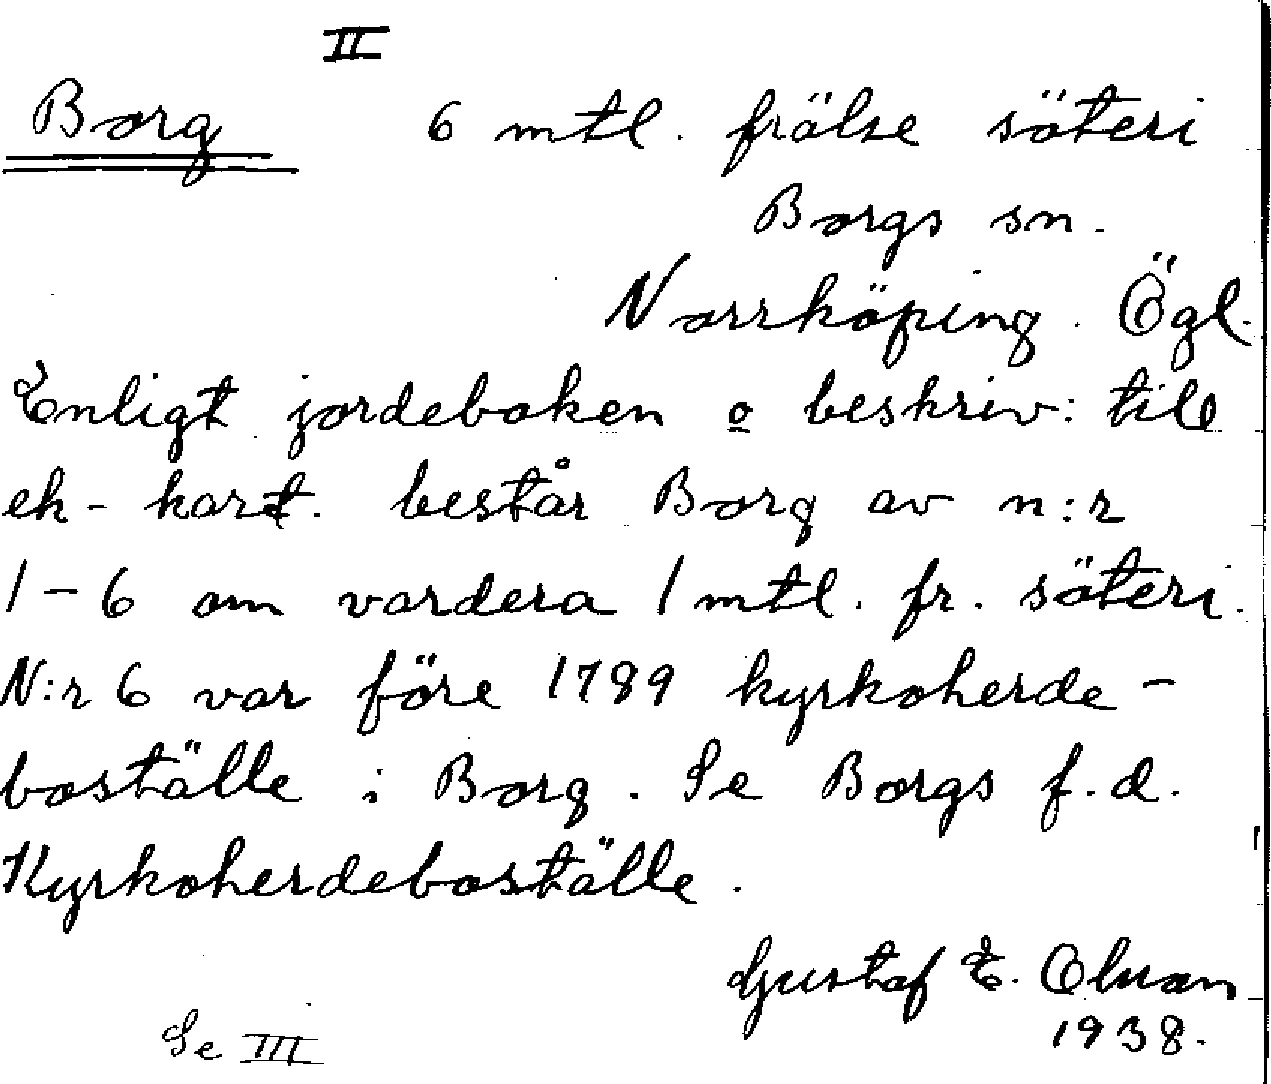 II
Borg 6 mtl. frälse säteri
Borgs sn.
Norrköping. Ögl.
Enligt jordeboken o beskriv: till
ek-kart. består Borg av n:r
1-6 om vardera 1 mtl. fr. säteri.
N:r 6 var före 1789 kyrkoherde-
boställe i Borg. Se Borgs f.d.
Kyrkoherdeboställe.
Gustaf E. Olson
1938.
Se III